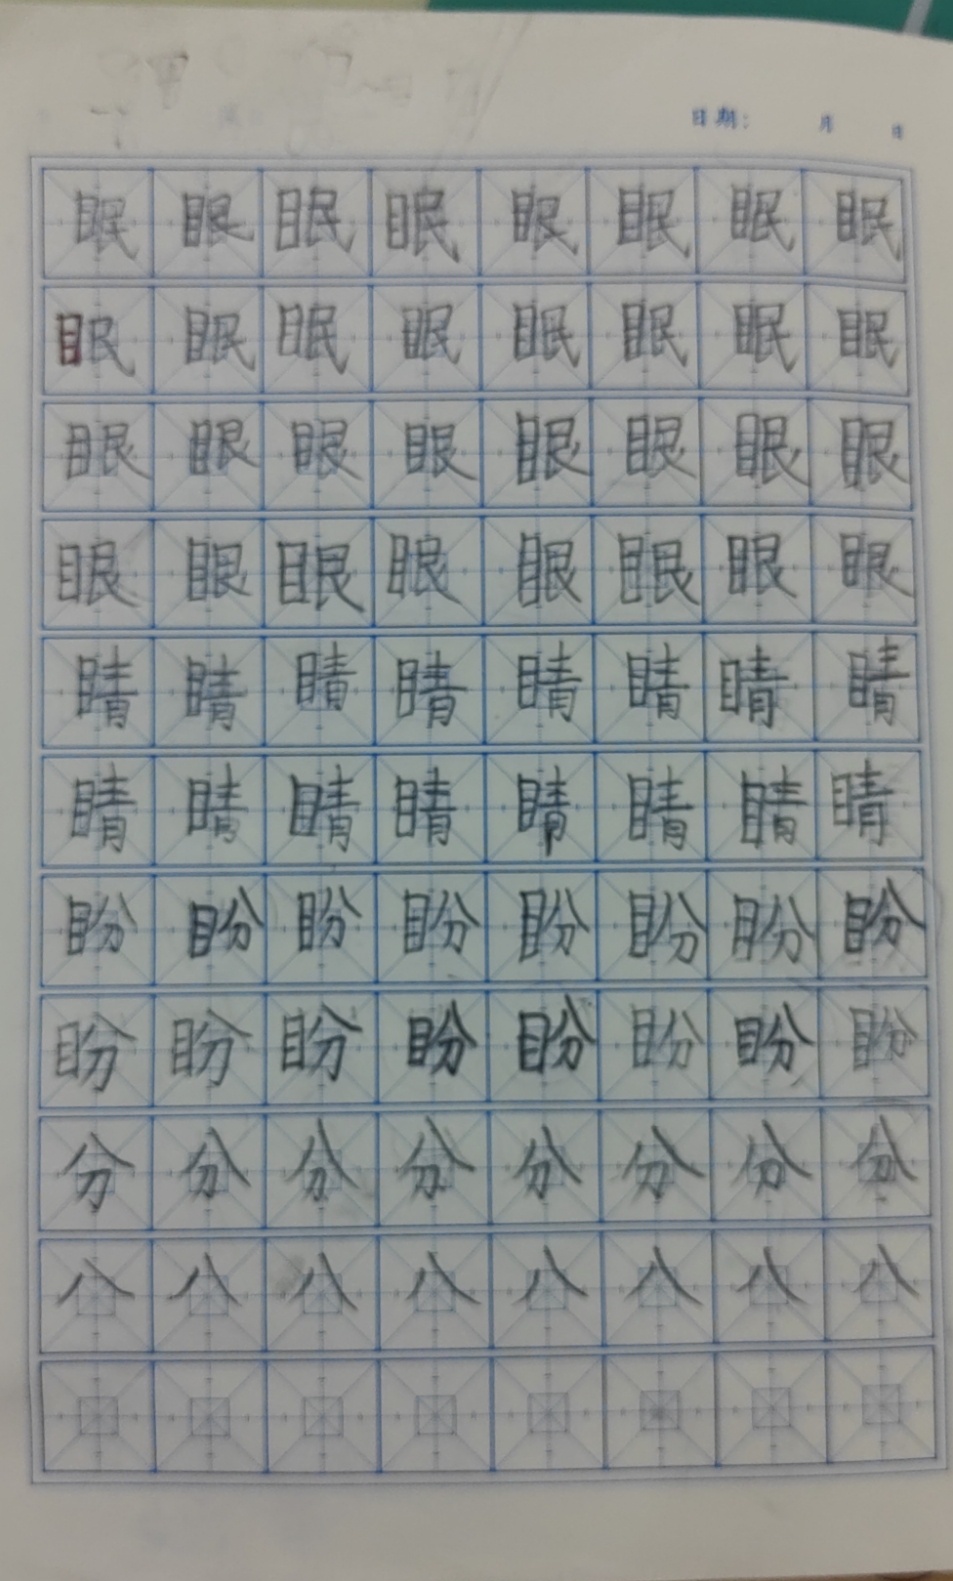 日期： 月 日
眠 眠 眠 眠 眠 眠 眠 眠
眠 眠 眠 眠 眠 眠 眠 眠
眼 眼 眼 眼 眼 眼 眼 眼
眼 眼 眼 眼 眼 眼 眼 眼
睛 睛 睛 睛 睛 睛 睛 睛
睛 睛 睛 睛 睛 睛 睛 睛
盼 盼 盼 盼 盼 盼 盼 盼
盼 盼 盼 盼 盼 盼 盼 盼
分 分 分 分 分 分 分 分
八 八 八 八 八 八 八 八